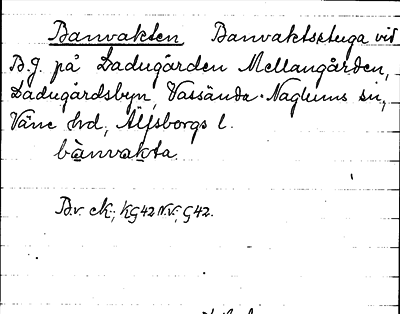 Banvakten Banvaktsstuga vid
B.J. på Ladugården Mellangården,
Ladugårdsbyn, Vassända-Naglums sn,
Väne hd, Älfsborgs l.
bànvakta.
B.v. ek; KG42 N.V; G42.